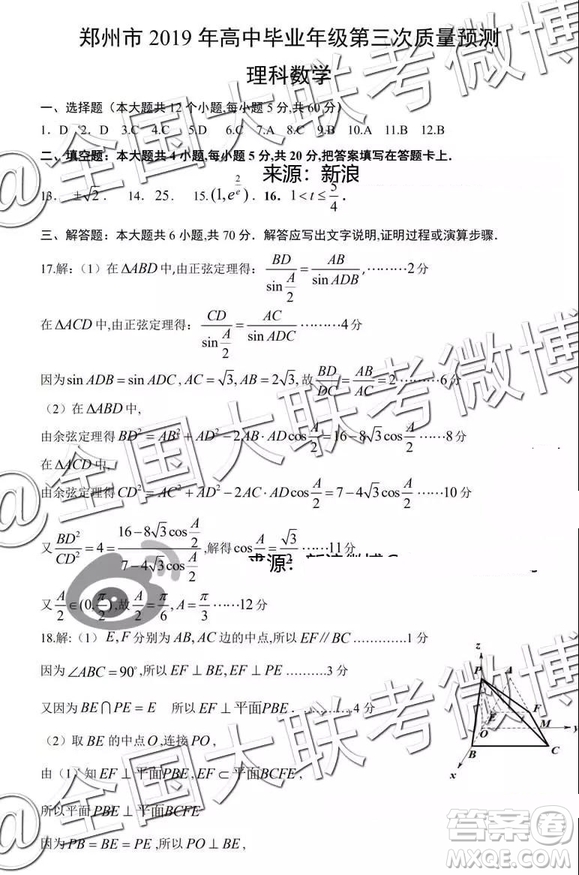 郑州市 2019 年高中毕业年级第三次质量预测
理科数学
一、选择题（本大题共 12 个小题,每小题 5 分,共 60 分）
1. D 2. D 9.B 10.A 11.B 12.B
二、填空题：本大题共 4 小题,每小题 5 分,共 20 分,把答案填写在答题卡上.
来源：新浪
13. ±√2. 14. 25. 15.(1,e^(2/e)). 16. 1<t≤5/4.
三、解答题：本大题共 6 小题,共 70 分．解答应写出文字说明,证明过程或演算步骤.
17.解：（1）在△ABD中,由正弦定理得：BD/sin(A/2)=AB/sin ADB,………2分
在△ACD中,由正弦定理得：CD/sin(A/2)=AC/sin ADC ………4分
因为sin ADB=sin ADC,AC=√3,AB=2√3,故BD/DC=AB/AC=2………6分
（2）在△ABD中,
由余弦定理得BD²=AB²+AD²−2AB·AD cos A/2=16−8√3cos A/2 ……8分
在△ACD中,
由余弦定理得CD²=AC²+AD²−2AC·AD cos A/2=7−4√3cos A/2 ……10分
又BD²/CD²=4=(16−8√3cos A/2)/(7−4√3cos A/2),解得cos A/2=√3/2.……11分
又A/2∈(0,π/2),故A/2=π/6,A=π/3……12分
18.解:（1）E,F分别为AB,AC边的中点,所以EF∥BC …………1分
因为∠ABC=90°,所以EF⊥BE,EF⊥PE ………3分
又因为BE∩PE=E 所以EF⊥平面PBE.
（2）取BE的中点O,连接PO,
由（1）知EF⊥平面PBE,EF⊂平面BCFE
所以平面PBE⊥平面BCFE
因为PB=BE=PE,所以PO⊥BE,
z
P
A
F
E
M
O
y
B
C
x
@全国大联考微博
@全国大联考微博
@全国大联考微博
答案圈
MXQE.COM